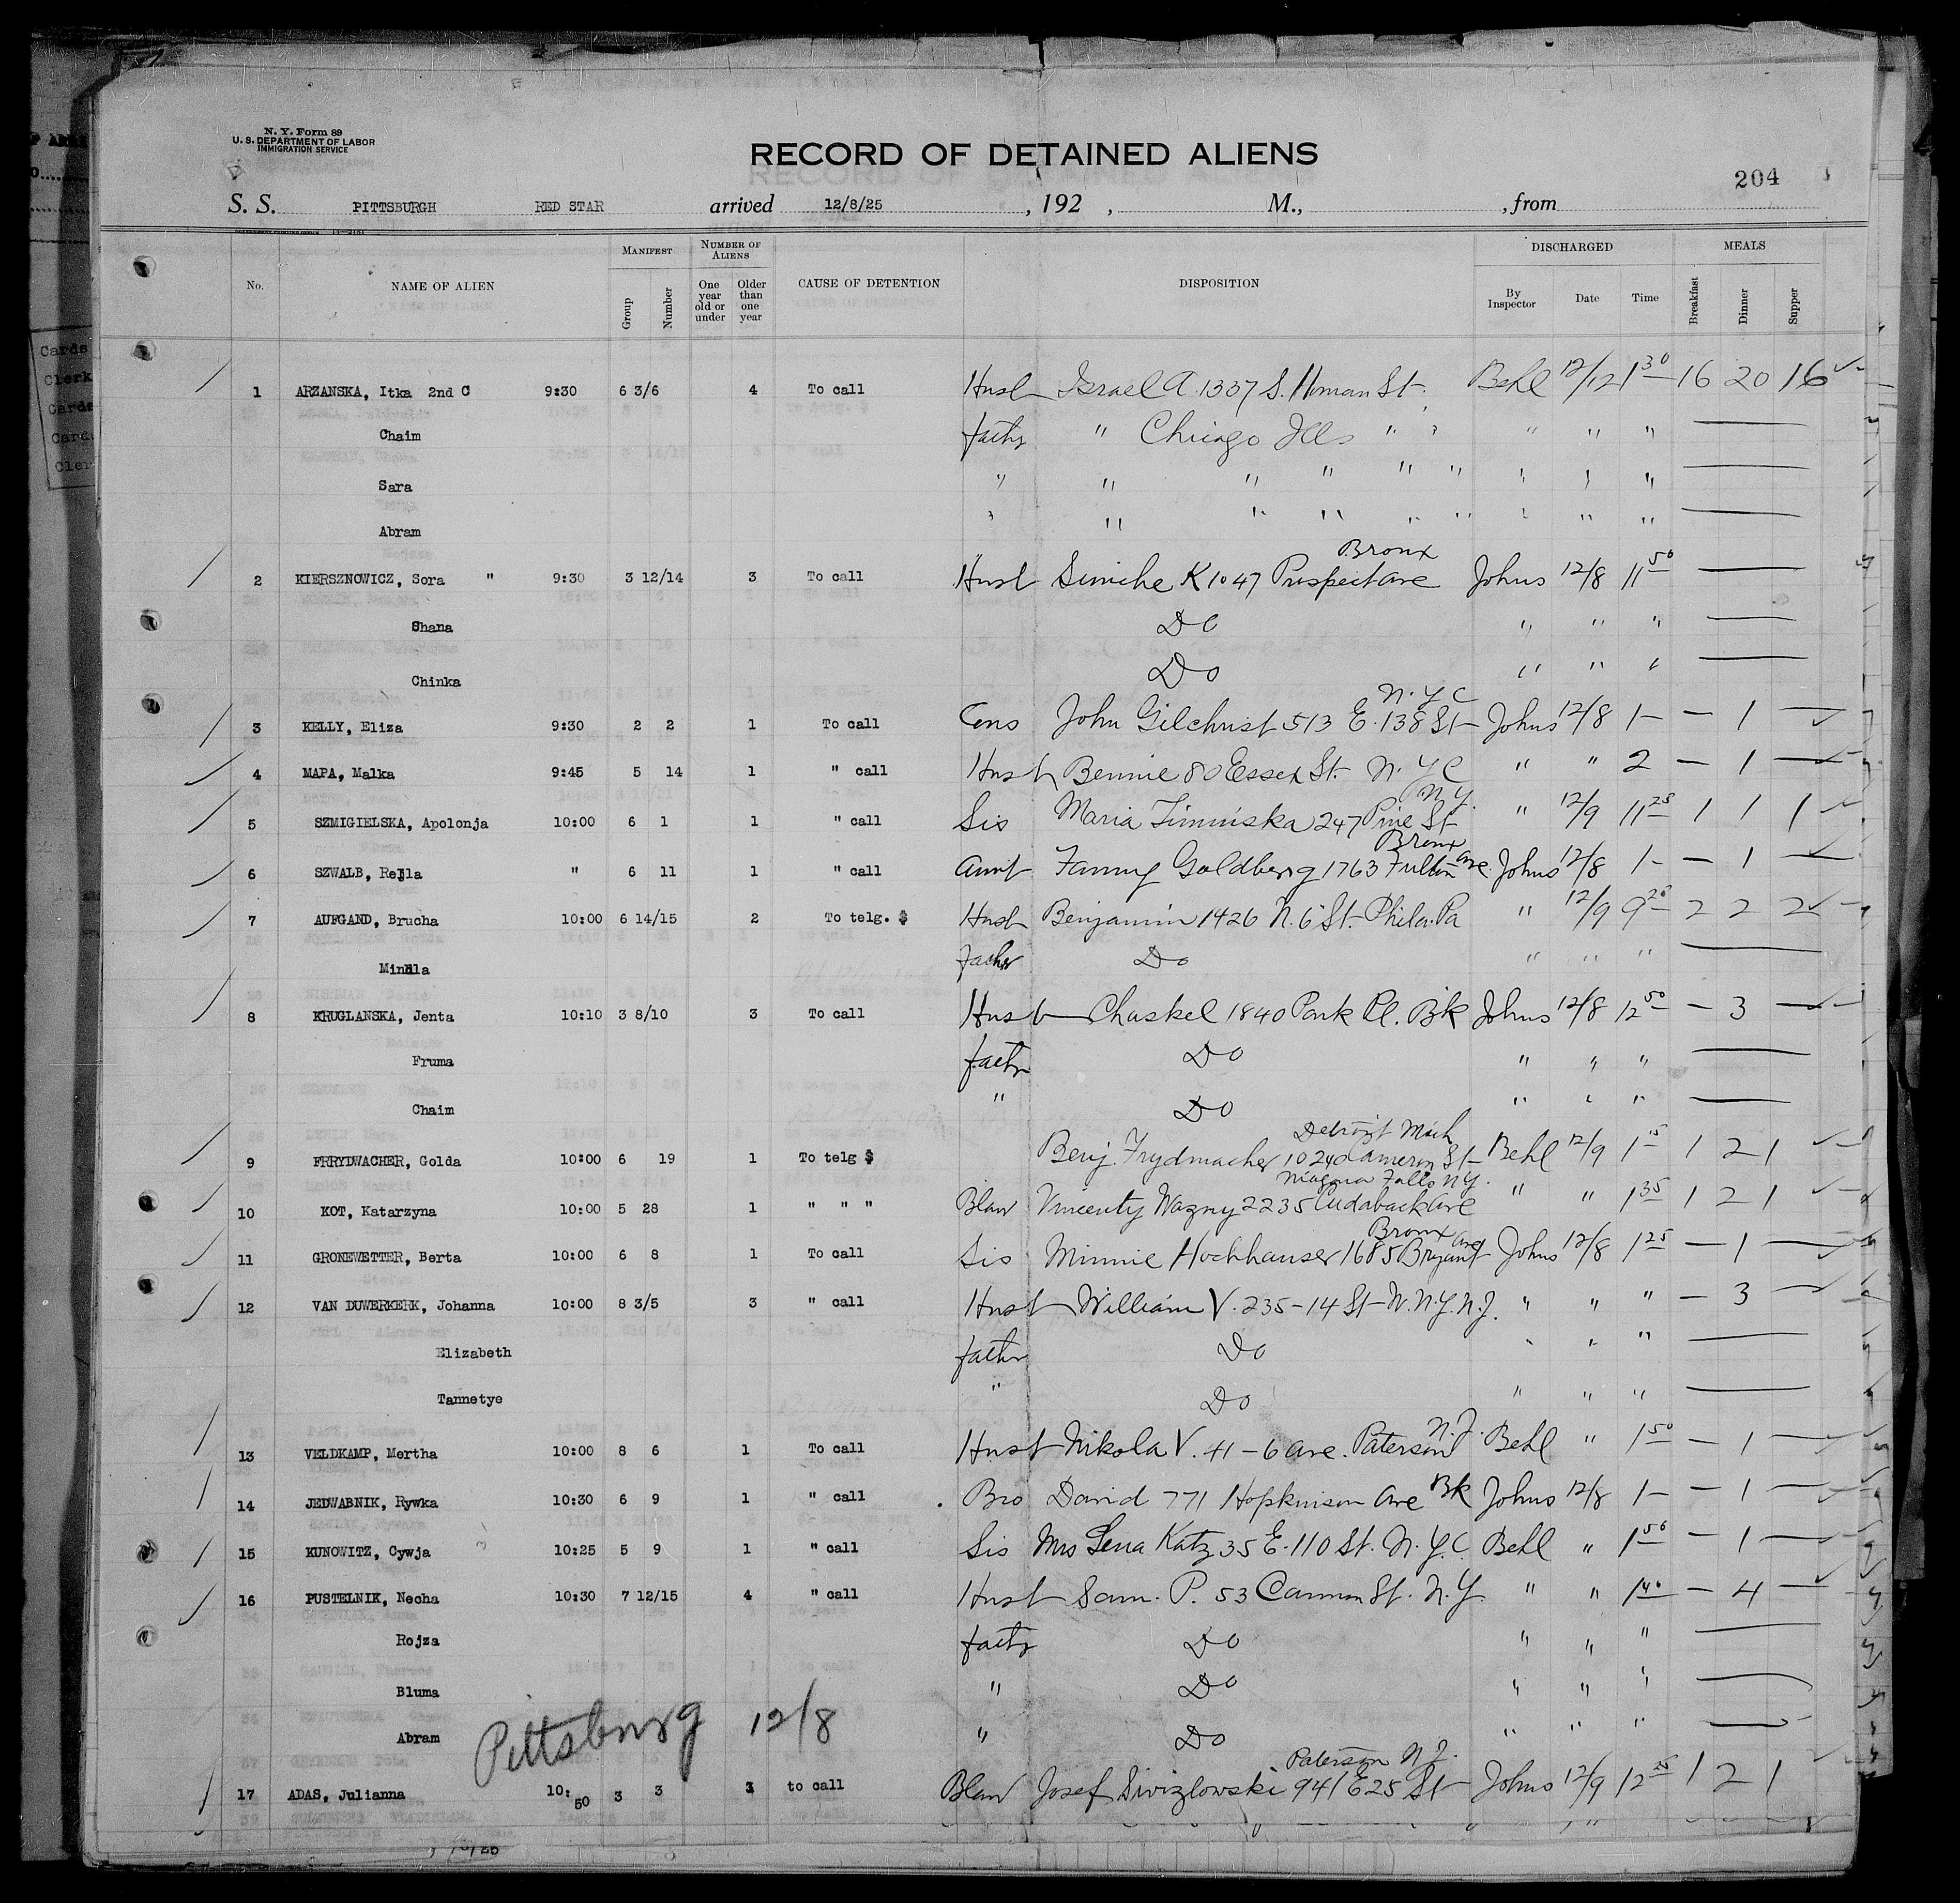 N. Y. Form 89
U. S. DEPARTMENT OF LABOR
IMMIGRATION SERVICE
RECORD OF DETAINED ALIENS
204
S. S. PITTSBURGH RED STAR arrived 12/8/25, 192 , M., , from
No. NAME OF ALIEN MANIFEST Group Number NUMBER OF ALIENS One year old or under Older than one year CAUSE OF DETENTION DISPOSITION DISCHARGED By Inspector Date Time MEALS Breakfast Dinner Supper
1 ARZANSKA, Itka 2nd C 9:30 6 3/6 4 To call Husb Israel A. 1337 S. Homan St. Behl 12/12 1 30 16 20 16
Chaim fathr " Chicago Ills " " " " "
Sara " " " " " " " " "
Abram " " " " " " " " "
Bronx
2 KIERSZNOWICZ, Sora " 9:30 3 12/14 3 To call Husb Simche K 1047 Prospect Ave Johns 12/8 11 50 —
Shana Do " " " —
Chinka Do " " " —
N.Y.C
3 KELLY, Eliza 9:30 2 2 1 To call Cous John Gilchrist 513 E. 138 St Johns 12/8 1— — 1 —
4 MAPA, Malka 9:45 5 14 1 " call Husb Bennie 80 Essex St. N.Y.C " " 2 — 1 —
N.Y.
5 SZMIGIELSKA, Apolonja 10:00 6 1 1 " call Sis Maria 247 Pine St " 12/9 11 25 1 1 1
Bronx
6 SZWALB, Rejla " 6 11 1 " call Aunt Fanny Goldberg 1763 Fulton Ave. Johns 12/8 1— — 1 —
7 AUFGAND, Brucha 10:00 6 14/15 2 To telg. $ Husb Benjamin 1426 N. 6 St. Phila. Pa " 12/9 9 20 2 2 2
Mindla Father Do " " " —
8 KRUGLANSKA, Jenta 10:10 3 8/10 3 To call Husb Chaskel 1840 Park Pl. Bk Johns 12/8 12 50 — 3 —
Fruma fathr Do " " " —
Chaim " Do " " " —
Detroit Mich
9 FRRYDWACHER, Golda 10:00 6 19 1 To telg $ Benj. Frydmacher 10240 Cameron St Behl 12/9 1 15 1 2 1
Niagara Falls N.Y.
10 KOT, Katarzyna 10:00 5 28 1 " " " Blaw Vincenty Wazny 2235 Cudaback Ave " " 1 35 1 2 1
Bronx
11 GRONEWETTER, Berta 10:00 6 8 1 To call Sis Minnie Hochhauser 1685 Bryant Ave Johns 12/8 1 25 — 1 —
12 VAN DUWERKERK, Johanna 10:00 8 3/5 3 " call Husb William V. 235-14 St W.N.Y. N.J. " " " — 3 —
Elizabeth fathr Do " " " —
Tannetye " Do " " " —
13 VELDKAMP, Mertha 10:00 8 6 1 To call Husb Nikola V. 41-6 Ave. Paterson N.J. Behl " 1 50 — 1 —
14 JEDWABNIK, Rywka 10:30 6 9 1 " call Bro David 771 Hopkinson Ave Bk Johns 12/8 1— — 1 —
15 KUNOWITZ, Cywja 10:25 5 9 1 " call Sis Mrs Lena Katz 35 E. 110 St. N.Y.C. Behl " 1 50 — 1 —
16 PUSTELNIK, Necha 10:30 7 12/15 4 " call Husb Sam. P. 53 Cannon St. N.Y. " " 1 40 — 4 —
Rojza fathr Do " " " —
Bluma " Do " " " —
Abram " Do " " " —
Pittsburg 12/8
Paterson N.J.
17 ADAS, Julianna 10:50 3 3 1 to call Blaw Josef 941 E 25 St Johns 12/9 12 25 1 2 1